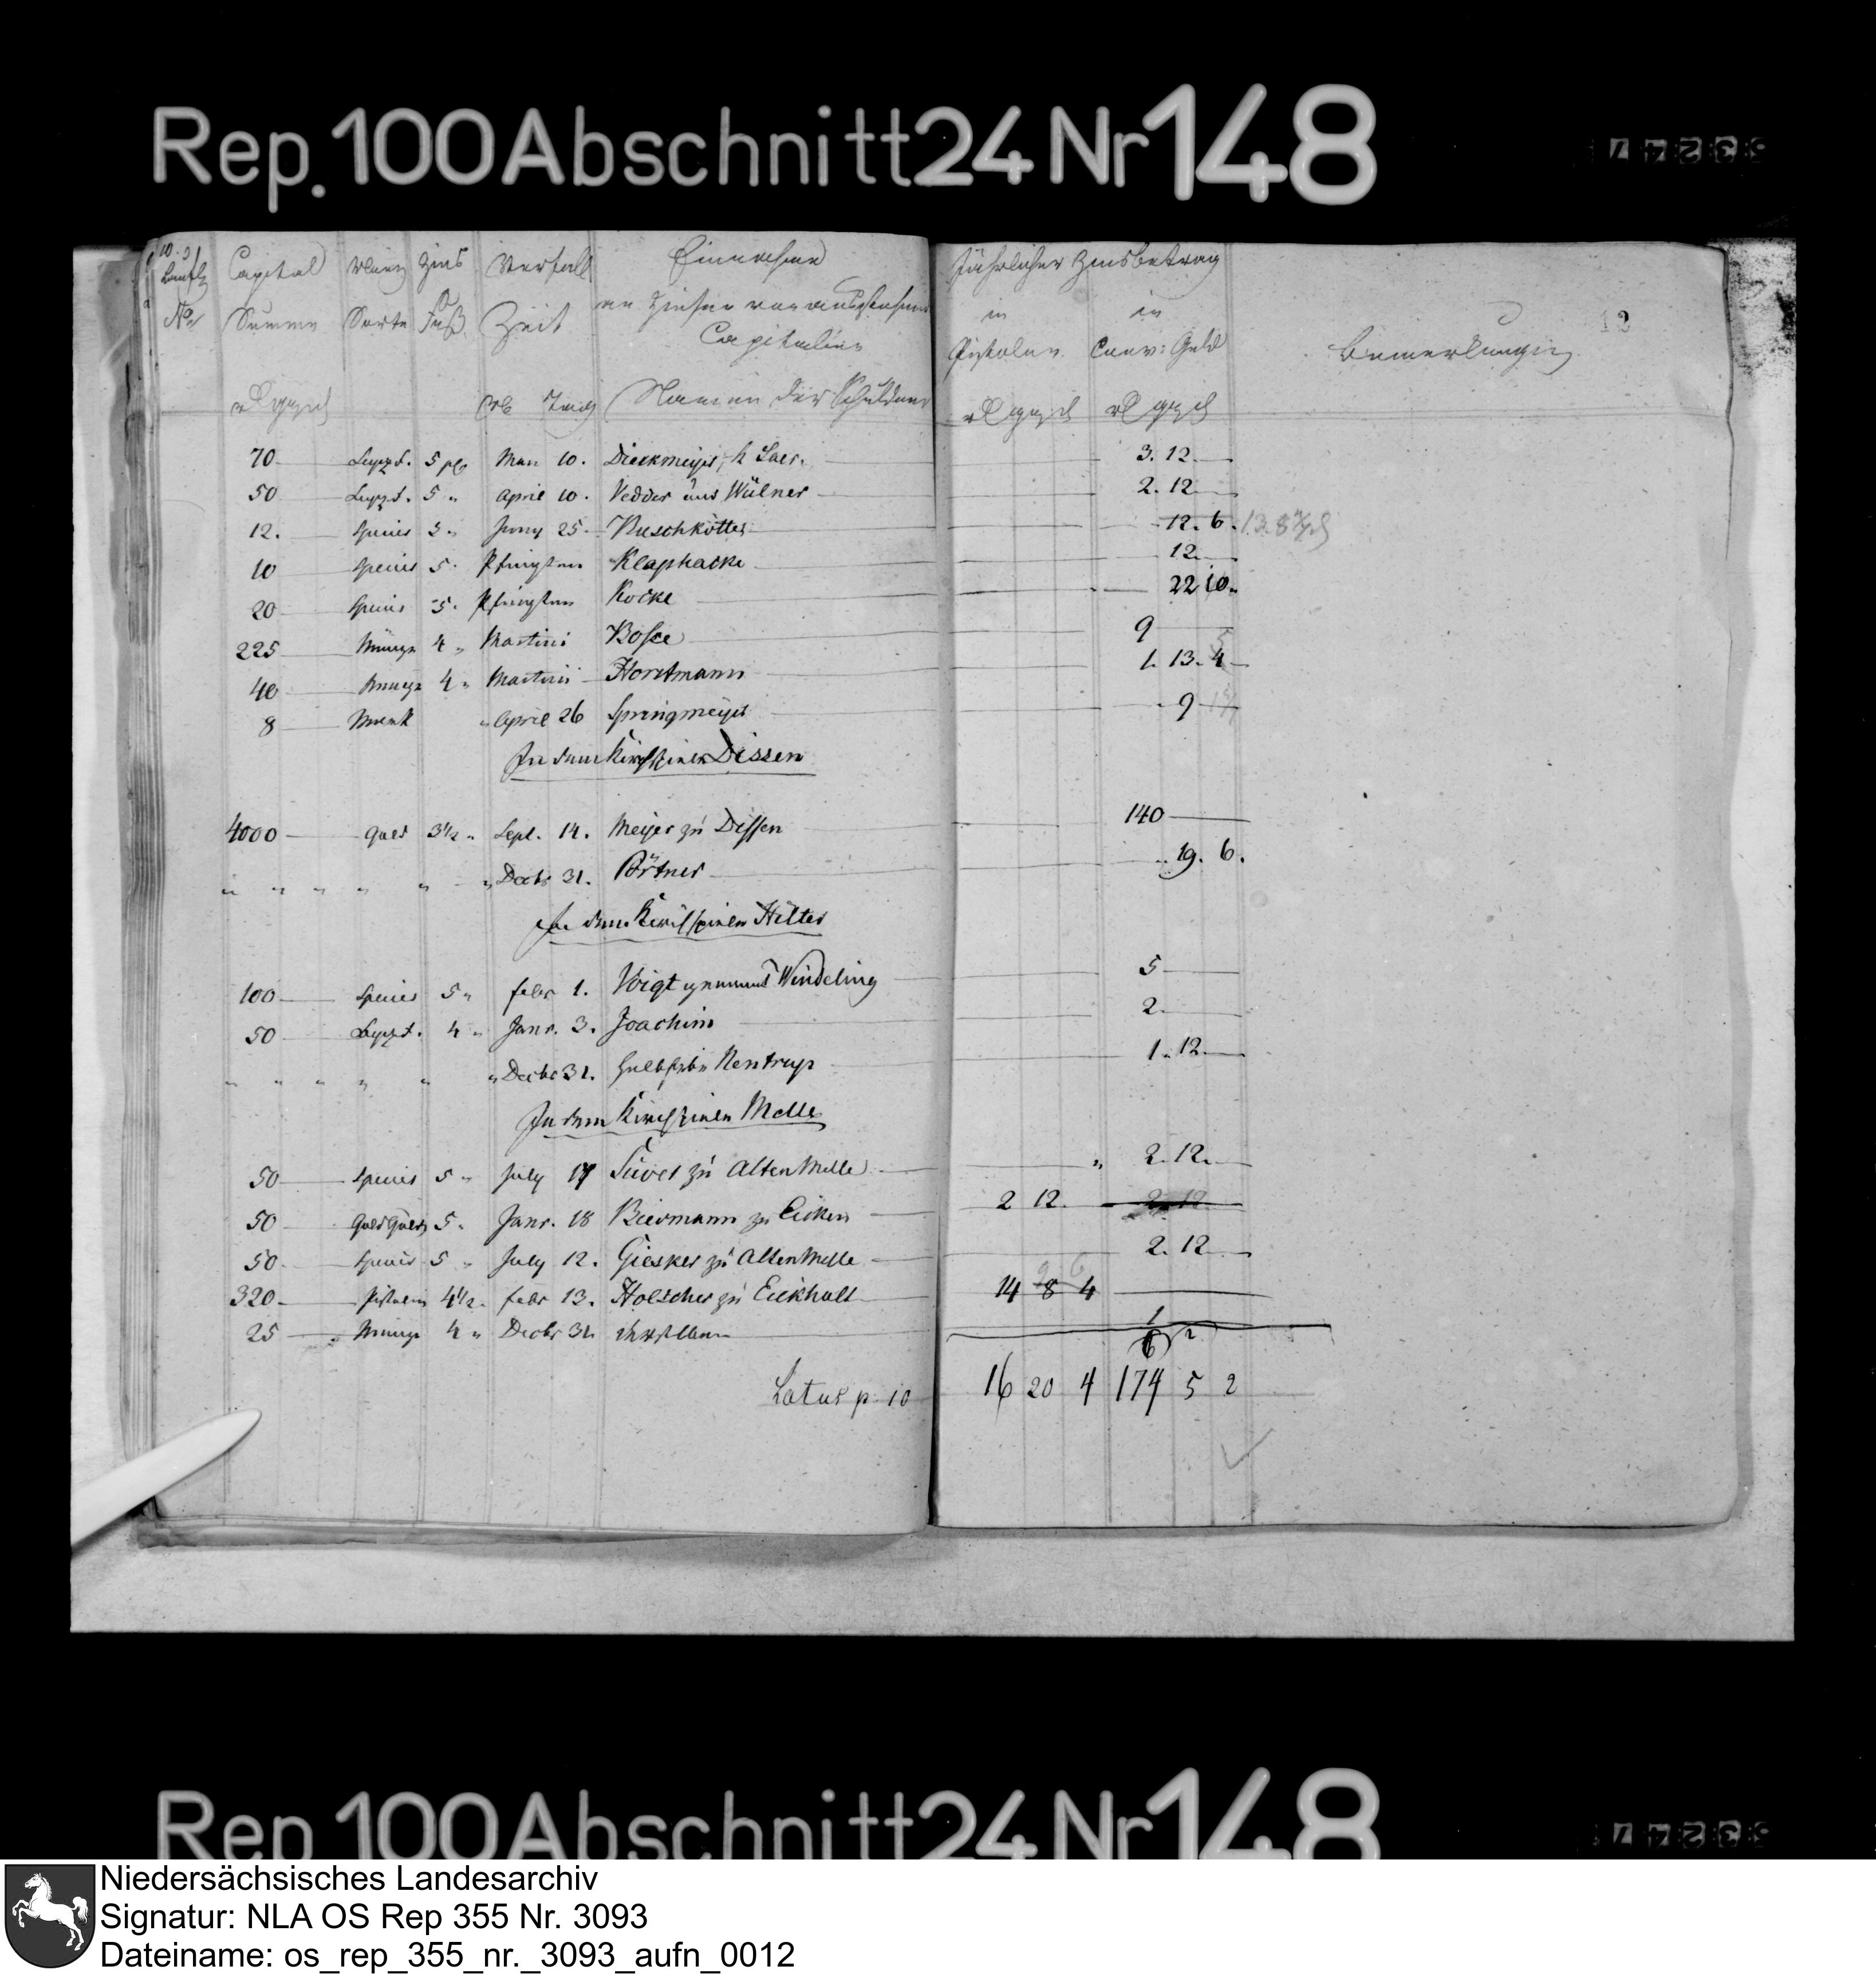 Rep. 100 Abschnitt 24 Nr 148
53247
10.
Laufd. Capital Münz Zins Verfall Einnahme Jährlicher Zinsbetrag
No Summe Sorte Fuß Zeit an Zinsen von ausstehenden in in 12
Capitalien Pistolen Conv: Geld Bemerkungen
Tag Namen der Schuldner
70 5 10. Dieckmeyer, 3. 12
50 5 „ April 10. Vedder aus Wülner 2. 12
12. Species 5 „ Juny 25. Buschkötter 12. 6.
10 Species 5 Pfingsten Klaphacke 12
20 Species 5. Pfingsten Kocke 22 10.
225 Münze 4 „ Martini Bosse 9
40 Münze 4 „ Martini Horstmann 1. 13. 4
8 „ April 26 Springmeyer 9
In dem Kirchspielen Dissen
4000 Gold 3 1/2 „ Sept. 14. Meyer zu Dissen 140
„ „ „ „ „ „ Decbr 31. Pörtner 19. 6.
In dem Kirchspielen Hilter
100 Species 5 „ Febr 1. Voigt genannt Windeling 5
50 4 „ Janr. 3. Joachim 2.
„ „ „ „ „ „ Decbr 31. Rentrup 1. 12
In dem Kirchspielen Melle
50 Species 5 „ July 17 Süver zu Alten Melle „ 2. 12.
50 5. Janr. 18 Biermann zu Eicken 2 12. 2. 12
50 Species 5 „ July 12. Giesker zu Alten Melle 2. 12
320 Pistolen 4 1/2 Febr 13. Holscher zu Eickholt 14 8 4
25 Münze 4 „ Decbr 31. 1
Latus p. 10 16 20 4 174 5 2
Rep 100 Abschnitt 24 Nr 148
53247
Niedersächsisches Landesarchiv
Signatur: NLA OS Rep 355 Nr. 3093
Dateiname: os_rep_355_nr._3093_aufn_0012